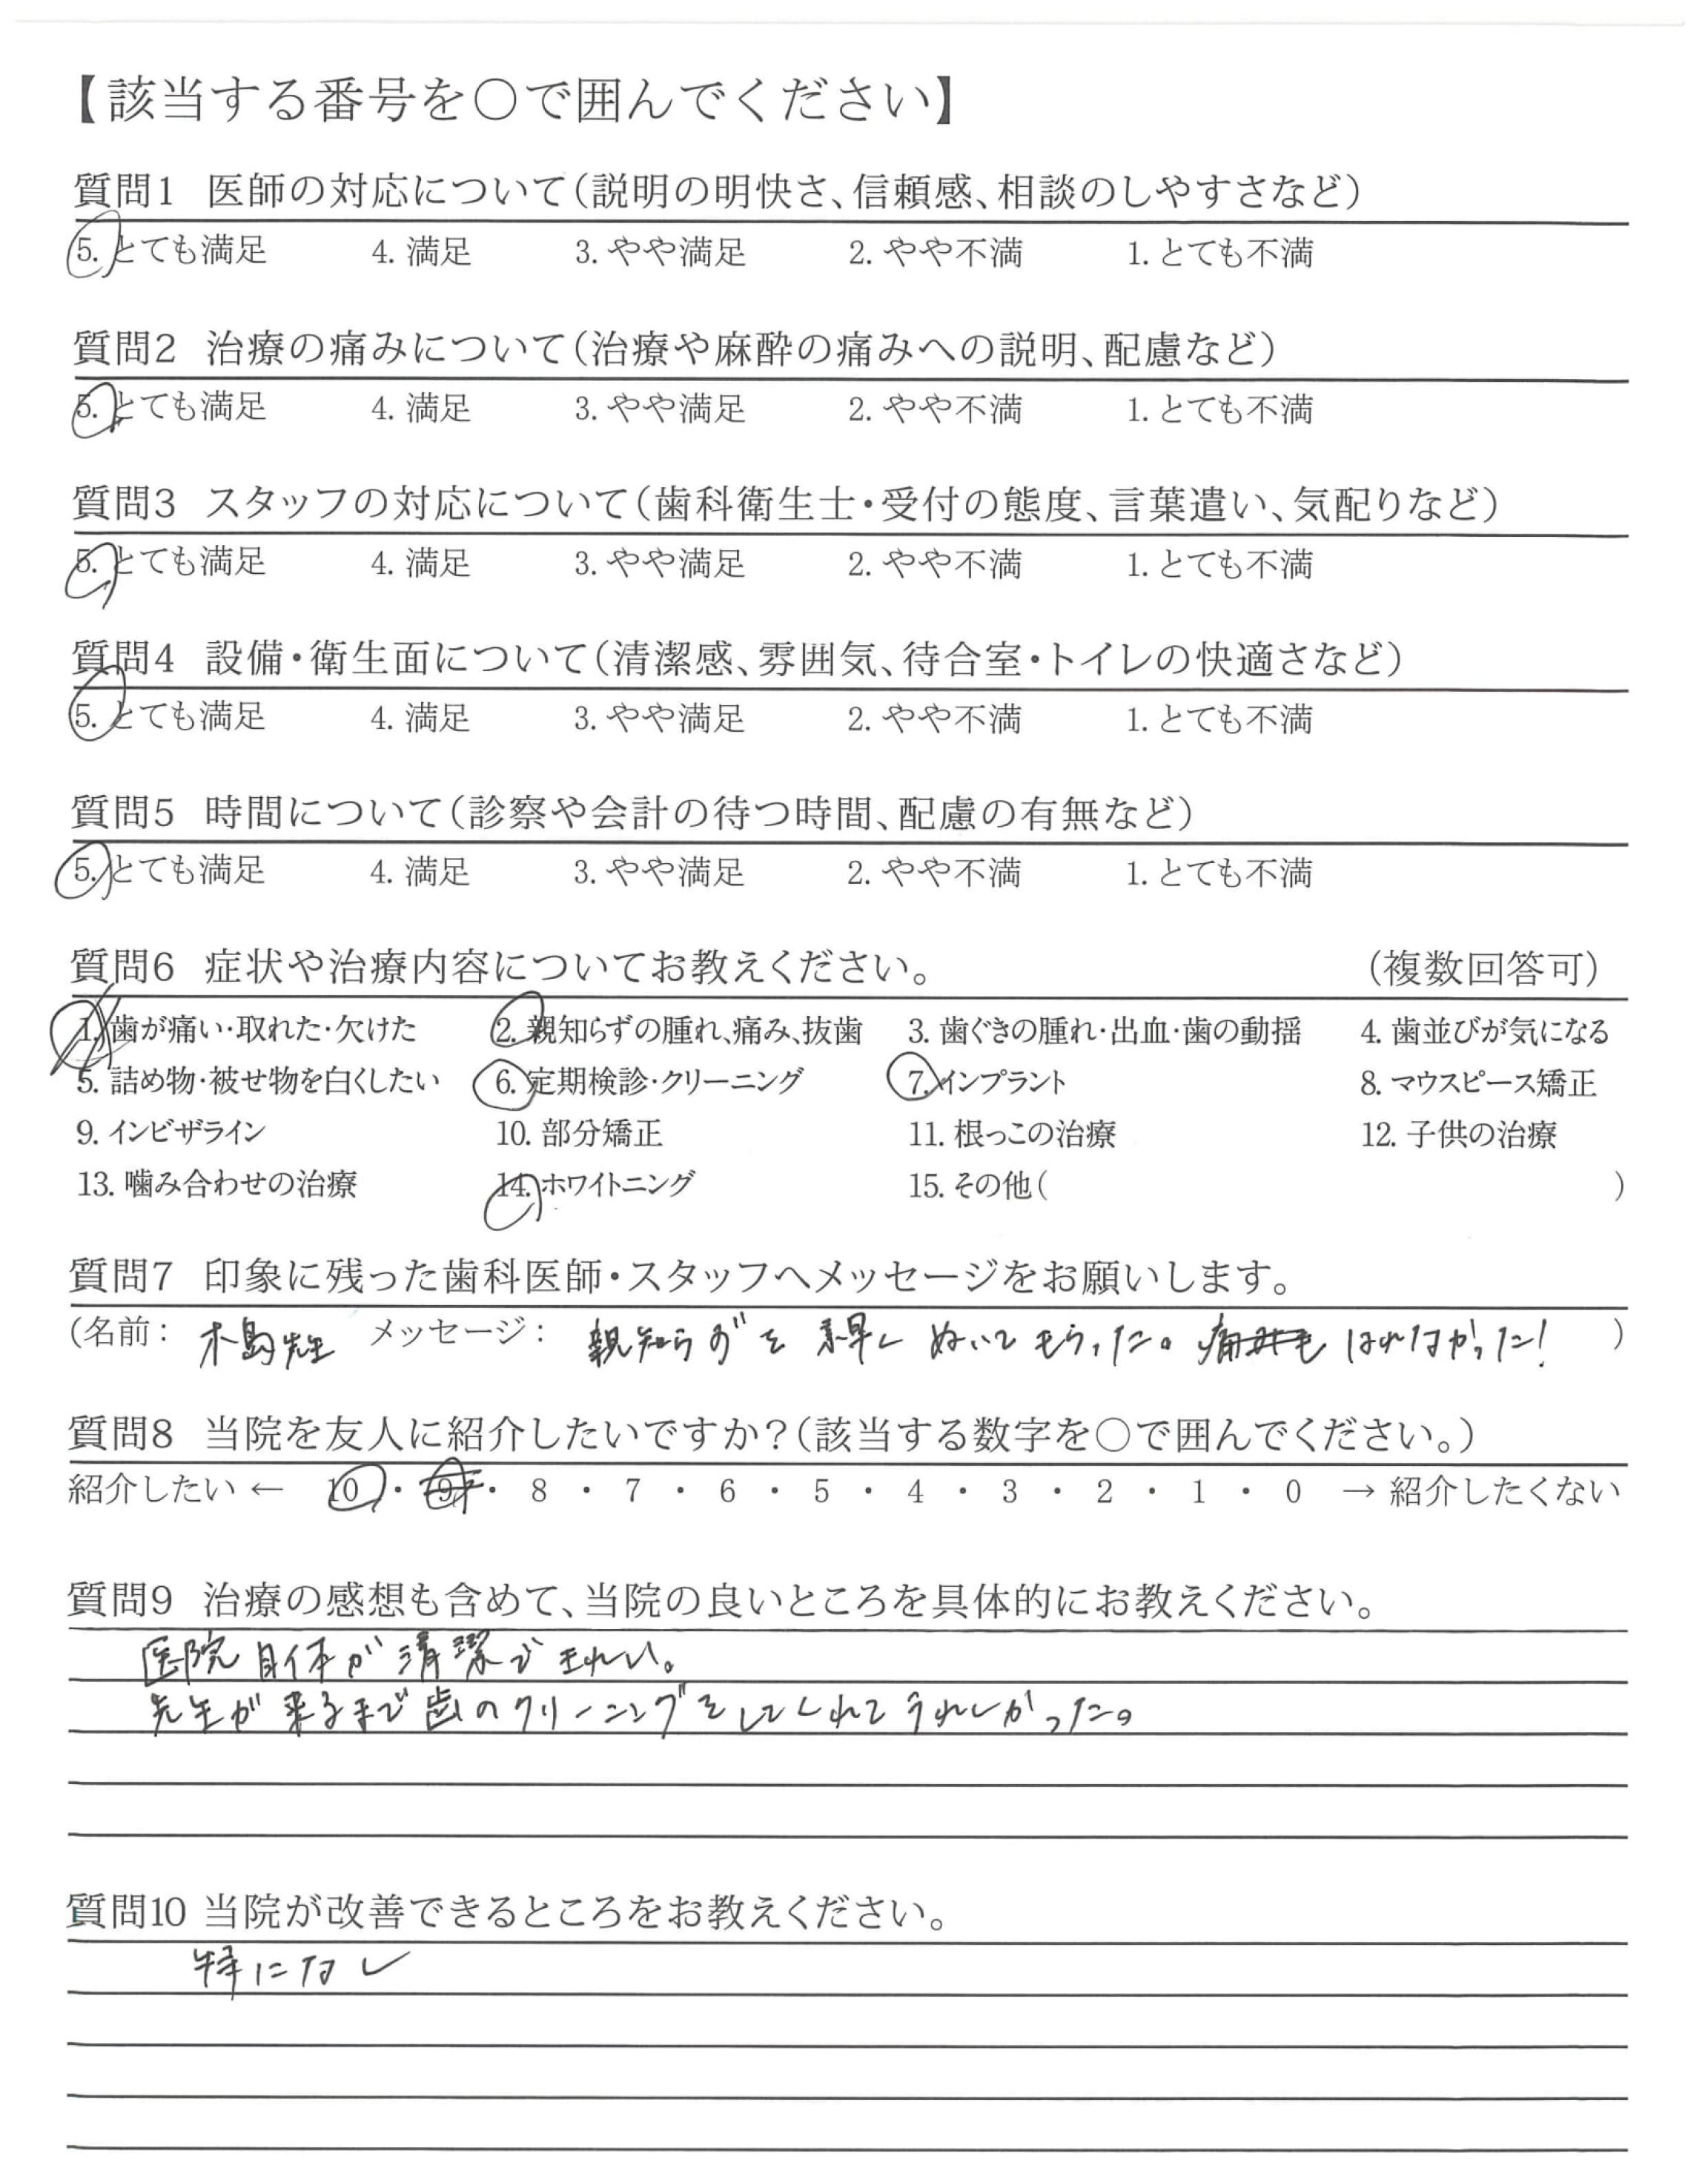 【該当する番号を○で囲んでください】
質問1 医師の対応について（説明の明快さ、信頼感、相談のしやすさなど）
5. とても満足 4. 満足 3. やや満足 2. やや不満 1. とても不満
質問2 治療の痛みについて（治療や麻酔の痛みへの説明、配慮など）
5. とても満足 4. 満足 3. やや満足 2. やや不満 1. とても不満
質問3 スタッフの対応について（歯科衛生士・受付の態度、言葉遣い、気配りなど）
5. とても満足 4. 満足 3. やや満足 2. やや不満 1. とても不満
質問4 設備・衛生面について（清潔感、雰囲気、待合室・トイレの快適さなど）
5. とても満足 4. 満足 3. やや満足 2. やや不満 1. とても不満
質問5 時間について（診察や会計の待つ時間、配慮の有無など）
5. とても満足 4. 満足 3. やや満足 2. やや不満 1. とても不満
質問6 症状や治療内容についてお教えください。 （複数回答可）
1. 歯が痛い・取れた・欠けた 2. 親知らずの腫れ、痛み、抜歯 3. 歯ぐきの腫れ・出血・歯の動揺 4. 歯並びが気になる
5. 詰め物・被せ物を白くしたい 6. 定期検診・クリーニング 7. インプラント 8. マウスピース矯正
9. インビザライン 10. 部分矯正 11. 根っこの治療 12. 子供の治療
13. 噛み合わせの治療 14. ホワイトニング 15. その他（ ）
質問7 印象に残った歯科医師・スタッフへメッセージをお願いします。
（名前： 木島先生 メッセージ： 親知らずを素早くぬいてもらった。痛みも はれなかった！ ）
質問8 当院を友人に紹介したいですか？（該当する数字を○で囲んでください。）
紹介したい ← 10 ・ 9 ・ 8 ・ 7 ・ 6 ・ 5 ・ 4 ・ 3 ・ 2 ・ 1 ・ 0 → 紹介したくない
質問9 治療の感想も含めて、当院の良いところを具体的にお教えください。
医院自体が清潔できれい。
先生が来るまで歯のクリーニングをしてくれてうれしかった。
質問10 当院が改善できるところをお教えください。
特になし